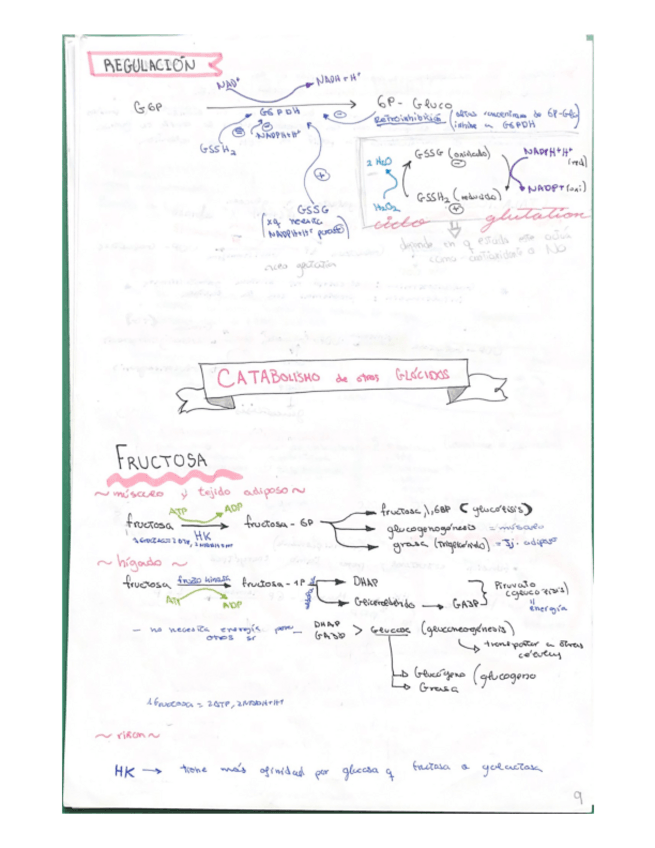 REGULACIÓN
NAD⁺ NADH + H⁺
G6P G6PDH 6P - Gluco
Retroinhibición (altas concentraciones de 6P-Glu
inhibe la G6PDH)
⊖ ⊖ NADPH+H⁺ ⊖
GSSH₂
⊕
GSSG
(xq necesita
NADPH+H⁺
2 H₂O GSSG (oxidado) NADPH+H⁺ (red)
⊖
H₂O₂ GSSH₂ (reducido) NADP+ (oxi)
⊕
ciclo glutation
depende en q estado este actúa
como antioxidante o NO
CATABOLISMO de otros GLÚCIDOS
FRUCTOSA
~ músculo y tejido adiposo ~
ATP ADP
fructosa HK fructosa - 6P
fructosa 1,6BP (glucólisis)
glucogenogénesis = músculo
grasa (triglicérido) = Tj. adiposo
~ hígado ~
fructosa fructo kinasa fructosa - 1P DHAP
ATP ADP
Gliceraldehido GA3P
Piruvato
(glucolisis)
energía
- no necesita energía pero
otros si
DHAP
GA3P > Glucosa (gluconeogénesis)
transportar a otras
células
Glucógeno (glucogeno
Grasa
1 fructosa = 2ATP, 2NADH+H⁺
~ riñon ~
HK → tiene más afinidad por glucosa q fructosa o galactosa
9